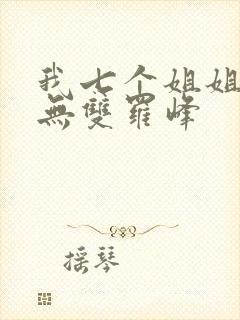 我七个姐姐
無雙羅峰
摇琴